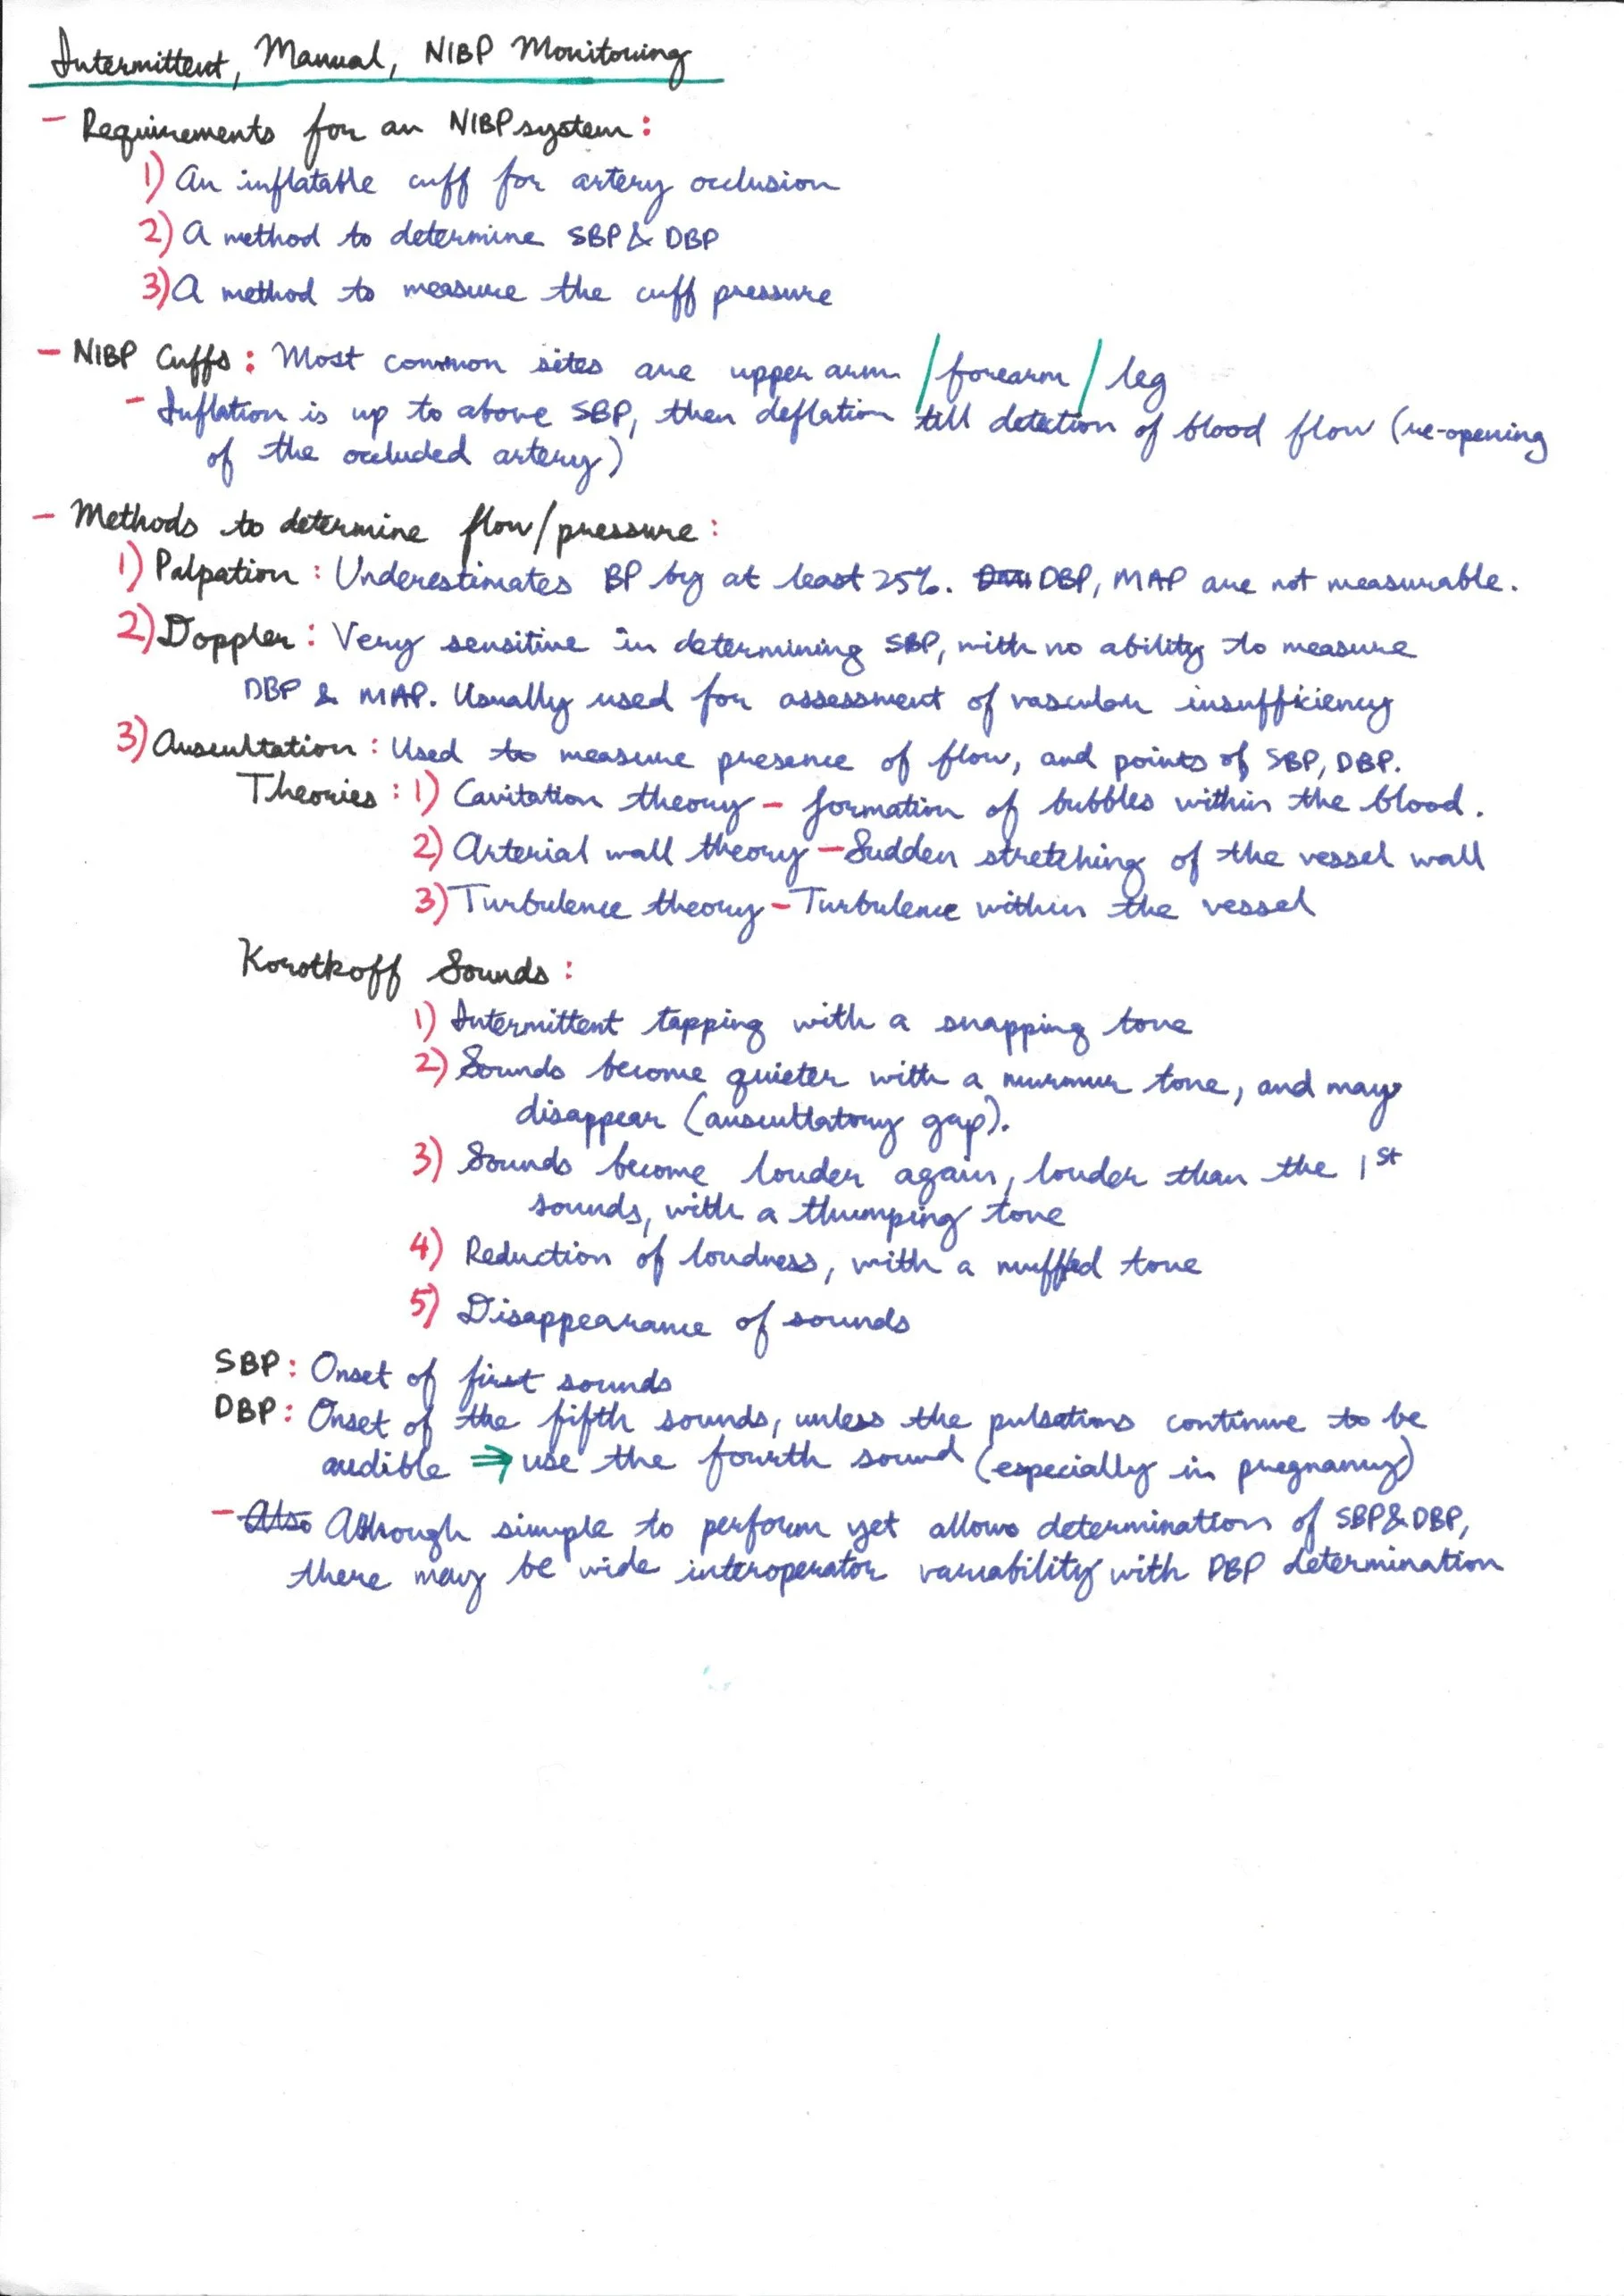 Intermittent, Manual, NIBP Monitoring
- Requirements for an NIBP system:
1) An inflatable cuff for artery occlusion
2) A method to determine SBP & DBP
3) A method to measure the cuff pressure
- NIBP Cuffs: Most common sites are upper arm / forearm / leg
- Inflation is up to above SBP, then deflation till detection of blood flow (re-opening
of the occluded artery)
- Methods to determine flow/pressure:
1) Palpation: Underestimates BP by at least 25%. DBP, MAP are not measurable.
2) Doppler: Very sensitive in determining SBP, with no ability to measure
DBP & MAP. Usually used for assessment of vascular insufficiency
3) Auscultation: Used to measure presence of flow, and points of SBP, DBP.
Theories: 1) Cavitation theory - formation of bubbles within the blood.
2) Arterial wall theory - Sudden stretching of the vessel wall
3) Turbulence theory - Turbulence within the vessel
Korotkoff Sounds:
1) Intermittent tapping with a snapping tone
2) Sounds become quieter with a murmur tone, and may
disappear (auscultatory gap).
3) Sounds become louder again, louder than the 1st
sounds, with a thumping tone
4) Reduction of loudness, with a muffled tone
5) Disappearance of sounds
SBP: Onset of first sounds
DBP: Onset of the fifth sounds, unless the pulsations continue to be
audible ⇒ use the fourth sound (especially in pregnancy)
- Also Although simple to perform yet allows determination of SBP & DBP,
there may be wide interoperator variability with DBP determination